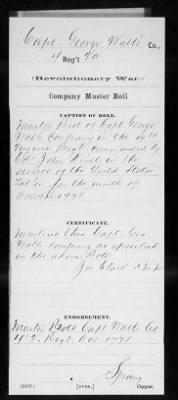 Capt. George Walls Co.,
4 Reg't Va
(Revolutionary War.)
Company Muster Roll
CAPTION OF ROLL.
Muster Roll of Capt George
Walls Company in the 4th
Virginia Regt. commanded by
Colo John Nevel in the
service of the United States
for the month of
October 1778
CERTIFICATE.
Mustered then Capt. Geo
Walls company as specified
in the above Roll
D.M.M.
ENDORSEMENT.
Muster Roll Capt Walls Co
4 V. Regt. Oct. 1778
[OVER.]
Copyist.